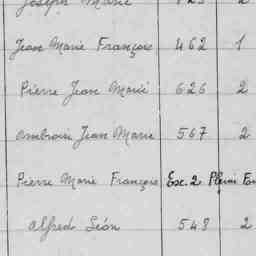 Joseph Marie 2
Jean Marie François 462 1
Pierre Jean Marie 626 2
Ambroise Jean Marie 567 2
Pierre Marie François Exc. 2
Alfred Léon 548 2